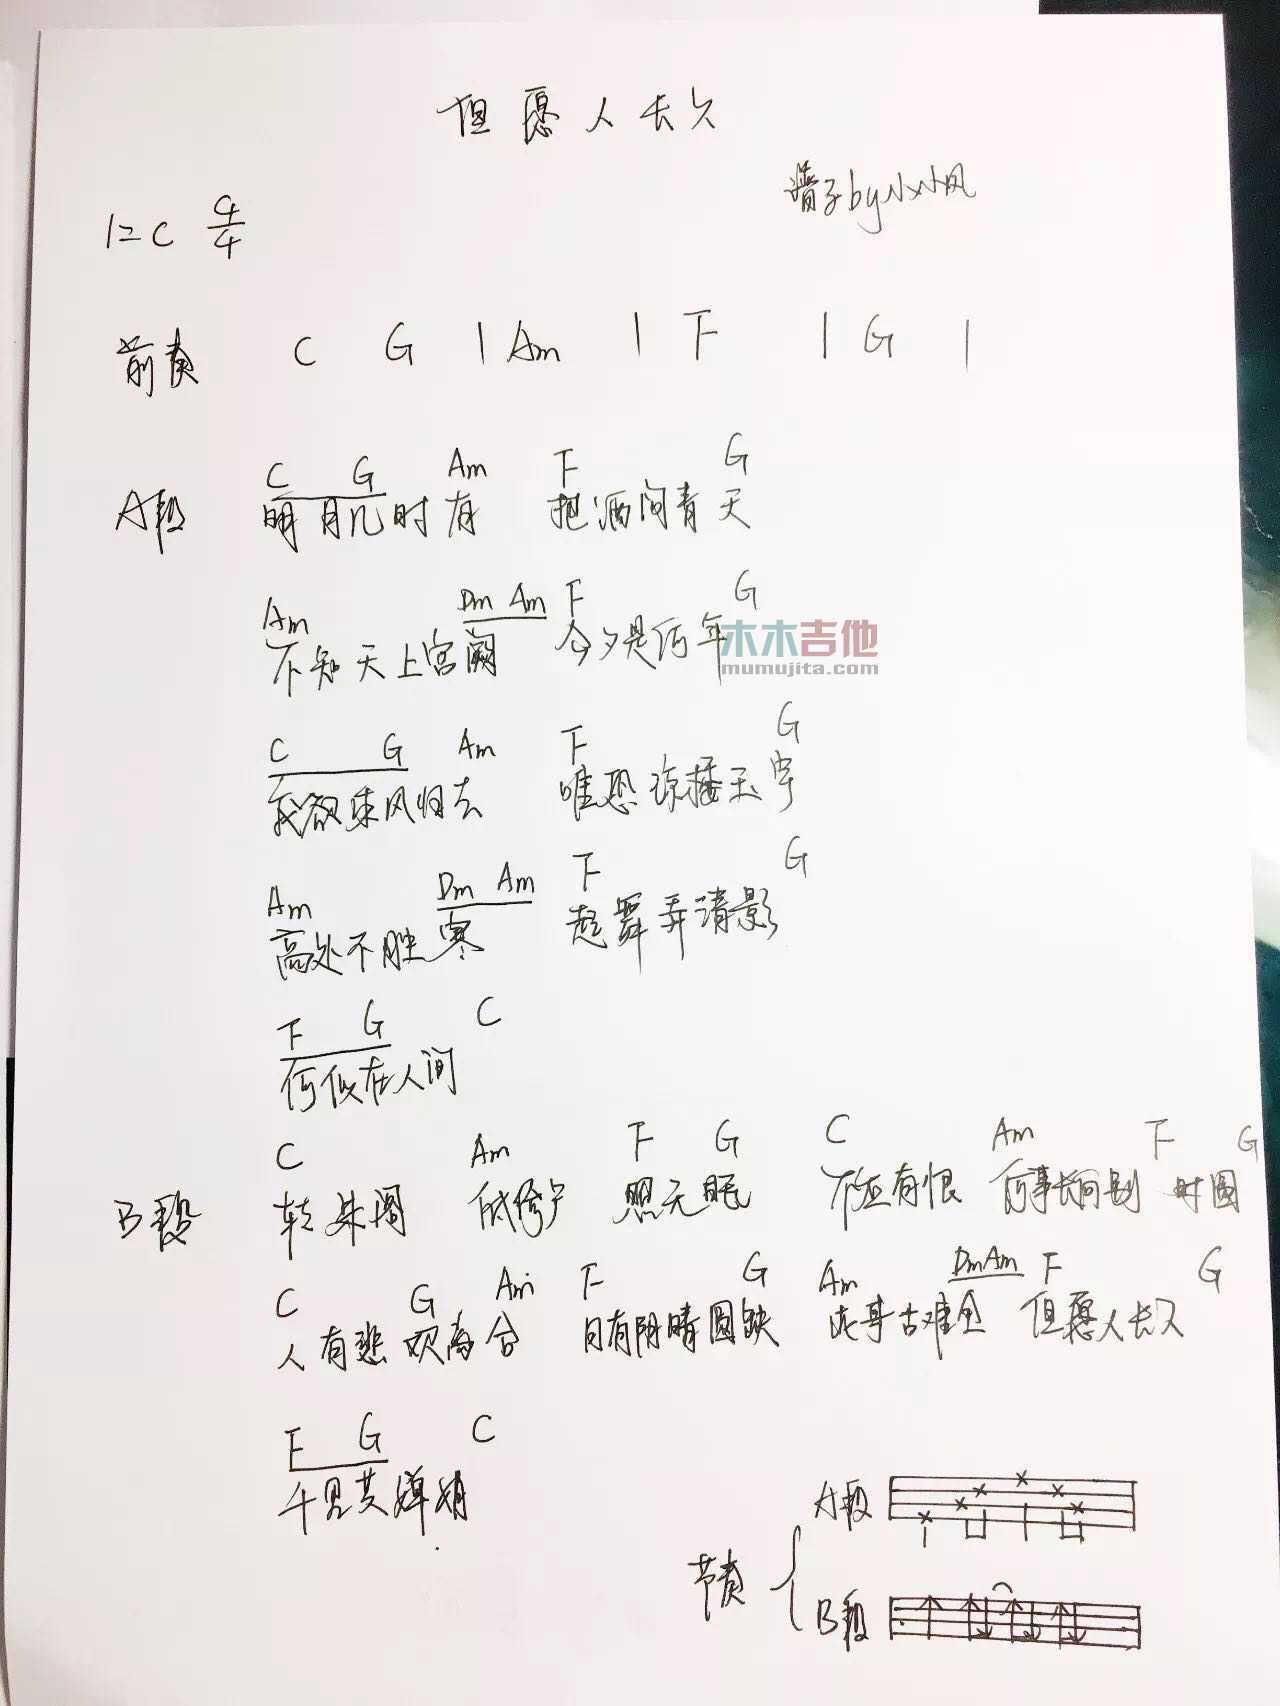 但愿人长久
谱子by小小风
1=C 4/4
前奏 C G | Am | F | G |
C G Am F G
A段 明月几时有 把酒问青天
Am Dm Am F G
不知天上宫阙 今夕是何年
木木吉他
mumujita.com
C G Am F G
我欲乘风归去 唯恐琼楼玉宇
Am Dm Am F G
高处不胜寒 起舞弄清影
F G C
何似在人间
C Am F G C Am F G
B段 转朱阁 低绮户 照无眠 不应有恨 何事长向别 时圆
C G Am F G Am Dm Am F G
人有悲欢离合 月有阴晴圆缺 此事古难全 但愿人长久
F G C
千里共婵娟
节奏
A段
B段